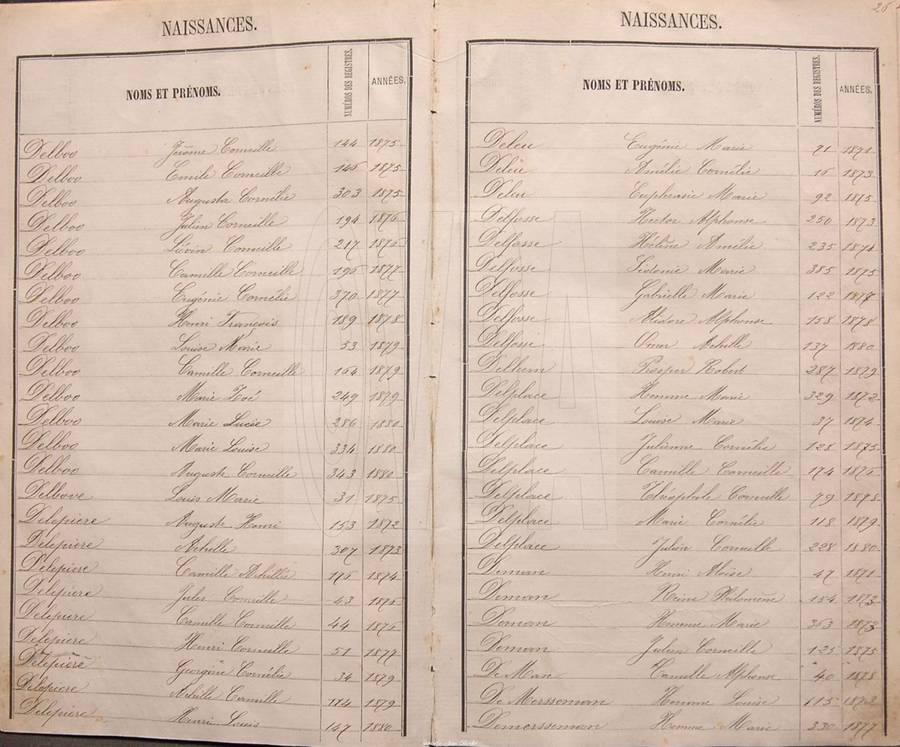 NAISSANCES.
NOMS ET PRÉNOMS. NUMÉROS DES REGISTRES. ANNÉES.
Delboo Jérôme Corneille 144 1875
Delboo Emile Corneille 1875
Delboo Augusta Cornélie 303 1875
Delboo Julien Corneille 194 1876
Delboo Liévin Corneille 217 1876
Delboo Camille Corneille 196 1877
Delboo Eugénie Cornélie 370 1877
Delboo Henri François 189 1878
Delboo Louise Marie 53 1879
Delboo Camille Corneille 164 1879
Delboo Marie Zoé 249 1879
Delboo Marie Lucie 286 1880
Delboo Marie Louise 334 1880
Delboo Auguste Corneille 343 1880
Delbove Louis Marie 31 1875
Delepiere Auguste Henri 153 1872
Delepiere Achille 307 1873
Delepiere Camille 1874
Delepiere Jules Corneille 43
Delepiere Camille Corneille 44 1876
Delepiere Henri Corneille 51 1877
Delepiere Georgine Cornélie 34 1879
Delepiere Achille Camille 1879
Delepiere Henri Louis 147 1880
NAISSANCES.
NOMS ET PRÉNOMS. NUMÉROS DES REGISTRES. ANNÉES.
Deleu Eugénie Marie 1871
Deleu Amélie Cornélie 16 1873
Deleu Euphrasie Marie 92 1875
Delfosse Hector Alphonse 250 1873
Delfosse Hélène Amélie 235 1874
Delfosse Sidonie Marie 385 1875
Delfosse Gabrielle Marie 122 1877
Delfosse Alidore Alphonse 158 1878
Delfosse Omer Achille 137 1880
Delhem Prosper Robert 287 1879
Delplace Hemme Marie 329 1872
Delplace Louise Marie 37 1874
Delplace Julienne Cornélie 128 1875
Delplace Camille Corneille 174 1876
Delplace Théophile Corneille 79 1878
Delplace Marie Cornélie 118 1879
Delplace Julien Corneille 228 1880
Deman Henri Aloïse 47 1871
Deman Philomène 154 1873
Deman Marie 1873
Deman Julien Corneille 125 1875
De Man Camille Alphonse 40 1878
De Mersseman Hemme Louise 115
Demersseman Hemme Marie 330 1877